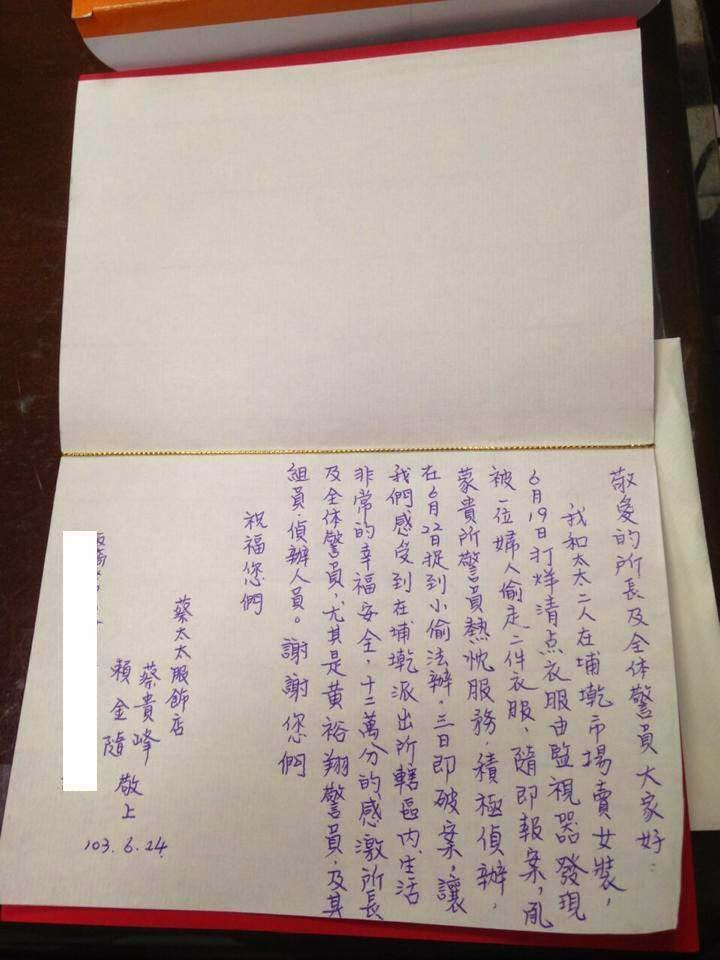 敬愛的所長及全体警員大家好.
我和太太二人在埔墘市場賣女裝,
6月19日打烊清点衣服由監視器發現
被一位婦人偷走二件衣服,隨即報案,承
蒙貴所警員熱忱服務.積極偵辦,
在6月22日捉到小偷法辦.三日即破案,讓
我們感受到在埔墘派出所轄區內.生活
非常的幸福安全,十二萬分的感激所長
及全体警員,尤其是黃裕翔警員.及其
組員.偵辦人員。謝謝您們
祝福您們
蔡太太服飾店
蔡貴峰
賴金隨 敬上
103.6.24